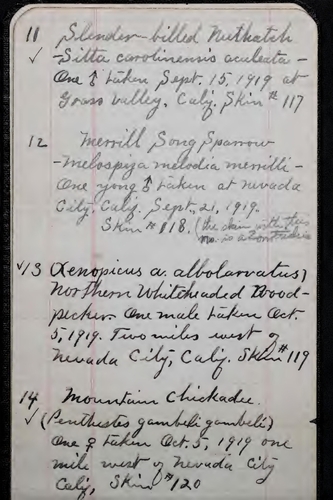 11 Slender-billed Nuthatch
✓ -Sitta carolinensis aculeata-
One ♂ taken Sept. 15, 1919 at
Grass Valley, Calif. Skin # 117
12 Merrill Song Sparrow
-Melospiza melodia merrilli-
One yong ♂ taken at Nevada
City, Calif. Sept. 21, 1919.
Skin # 118. (the skin with this
no. is a
✓13 (Xenopicus a. albolarvatus)
Northern Whiteheaded Wood-
pecker. One male taken Oct.
5, 1919. Two miles west of
Nevada City, Calif. Skin # 119
14 Mountain Chickadee.
✓ (Penthestes gambeli gambeli)
One ♀ taken Oct. 5, 1919 one
mile west of Nevada City
Calif, Skin # 120